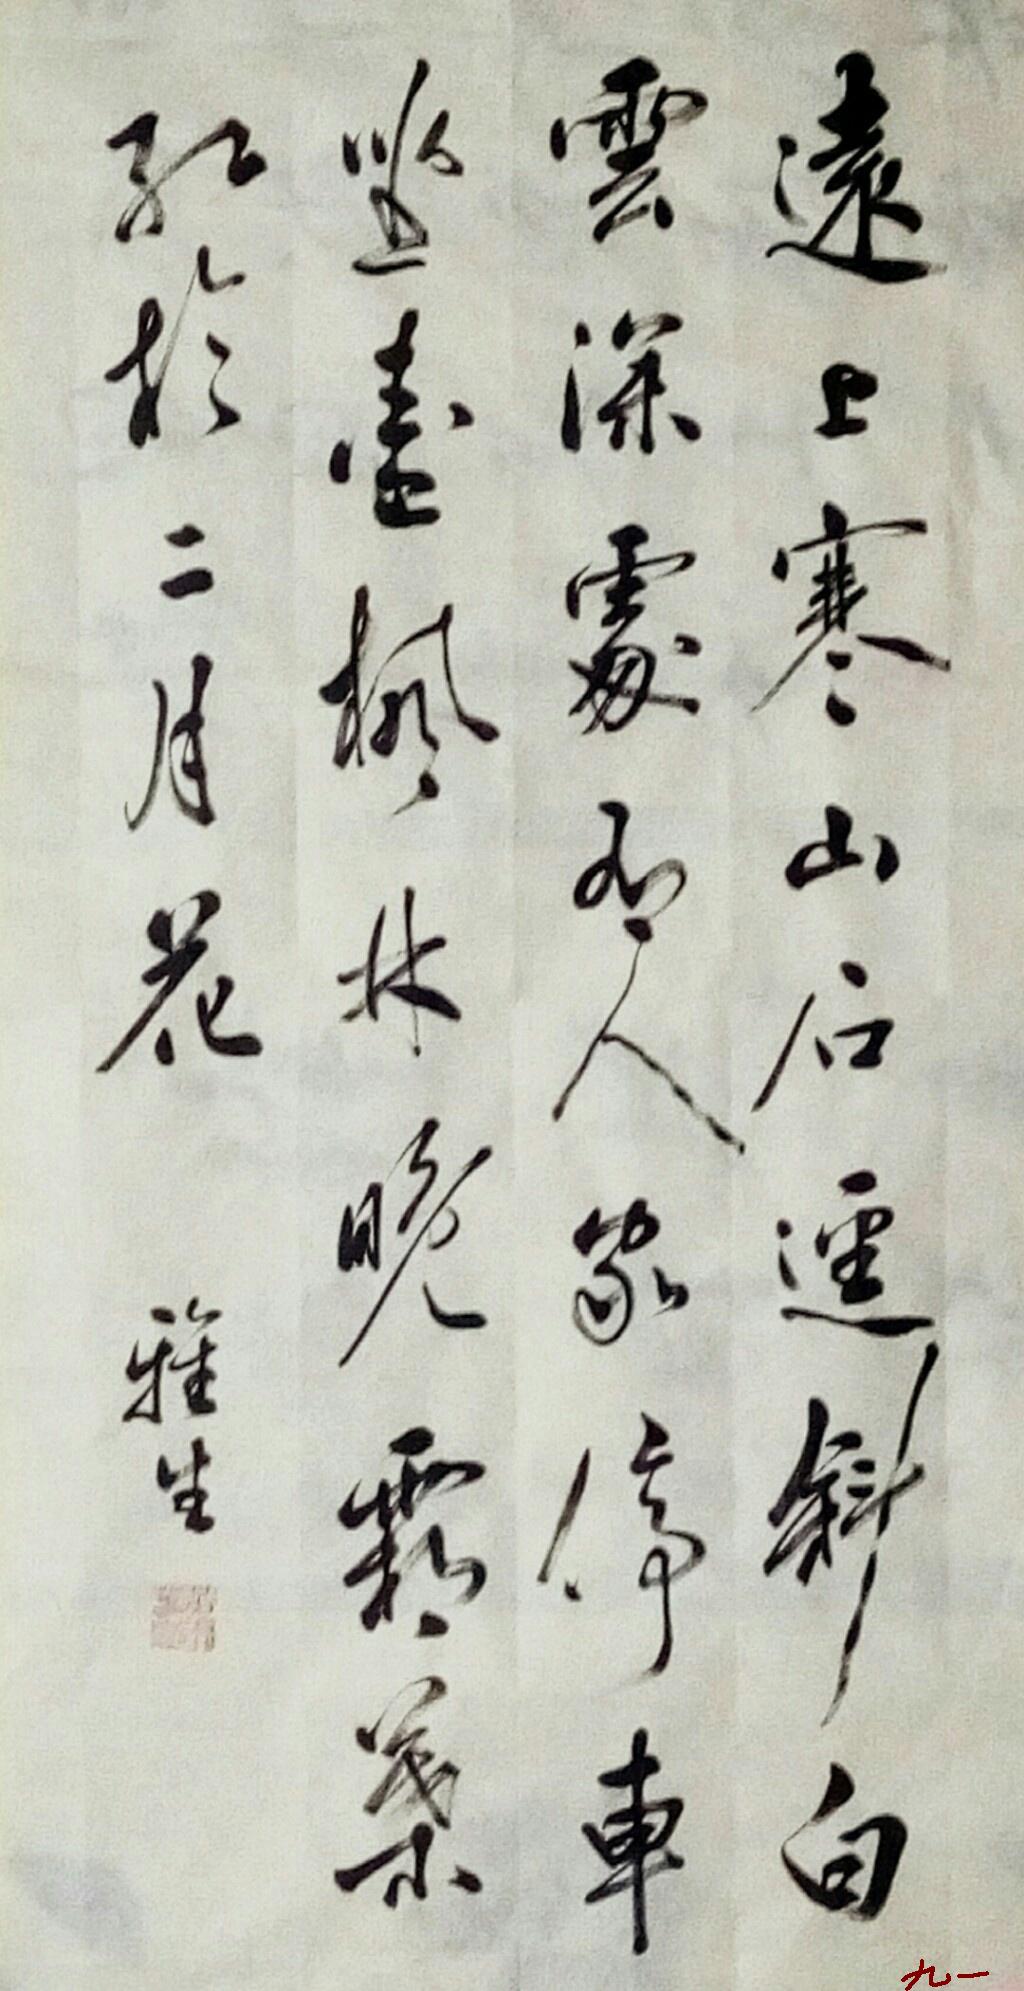 遠上寒山石逕斜白
雲深處有人家停車
坐愛楓林晚霜葉
紅於二月花
雅生
九一